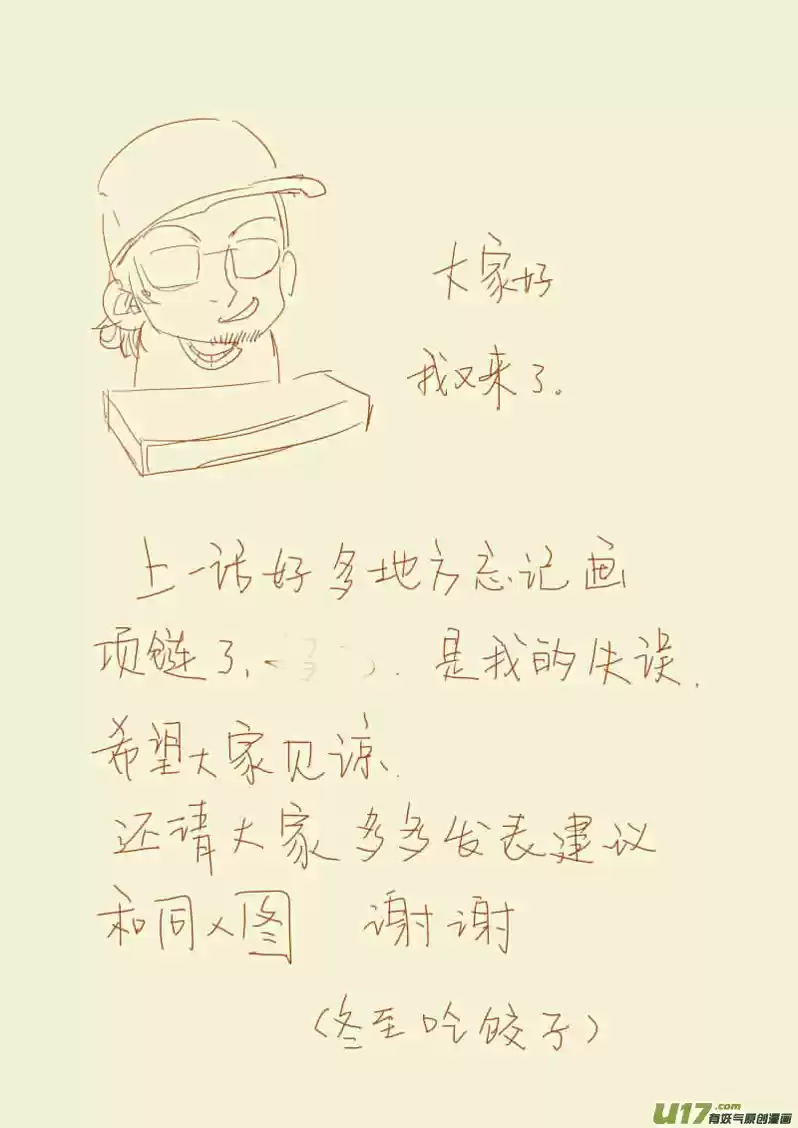 大家好
我又来了。
上一话好多地方忘记画
项链了, 是我的失误.
希望大家见谅.
还请大家多多发表建议
和同人图 谢谢
(冬至吃饺子)
U17.com
有妖气原创漫画